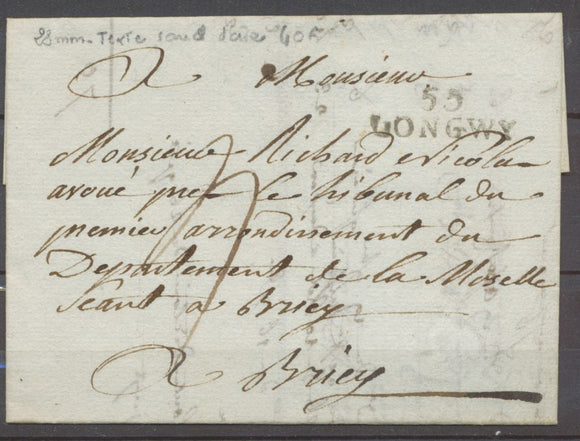 28mm. Texte sans date 40F
A Monsieur
55
LONGWY
Monsieur Richard Nicolas
avoué pres le tribunal du
premier arrondissement du
Departement de la Moselle
Seant a Briey
A Briey